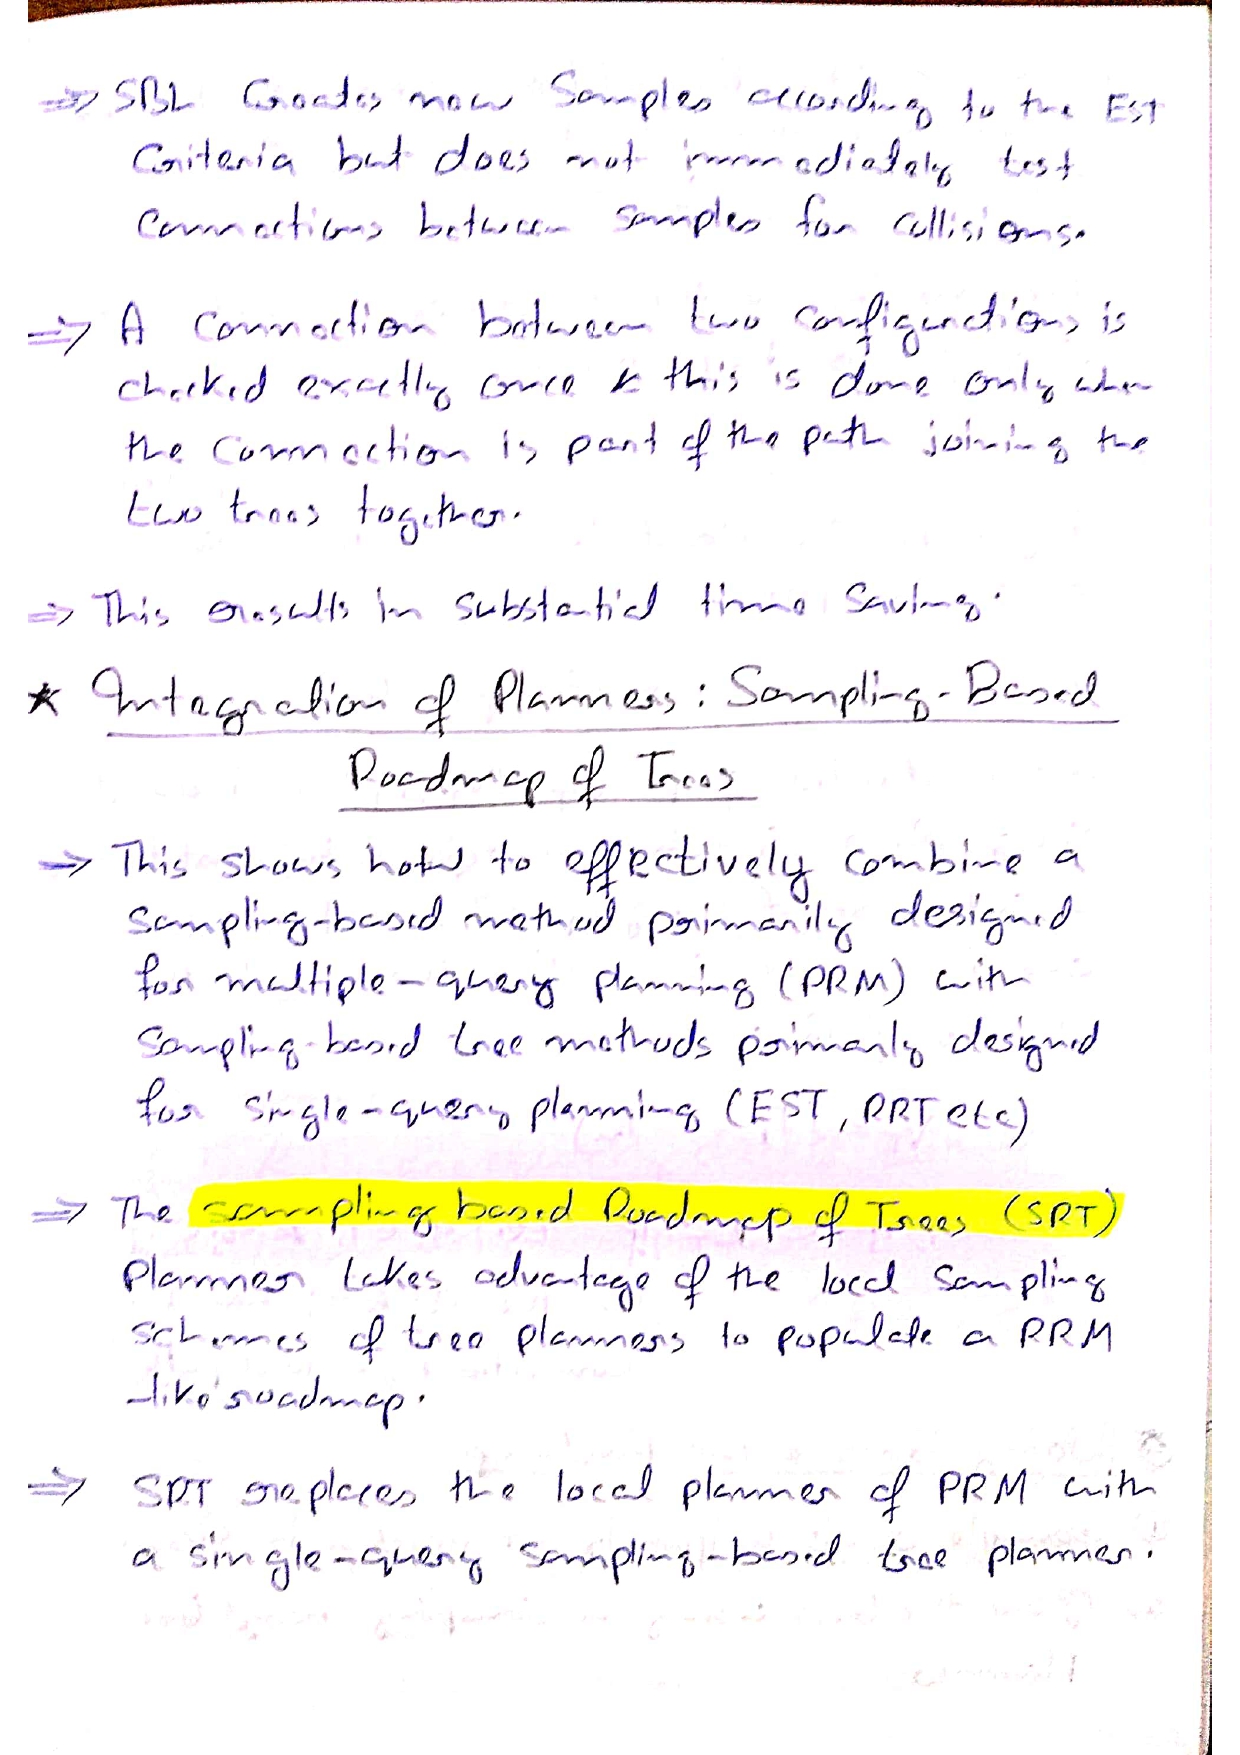 ⇒ SBL Creates new Samples according to the EST
Criteria but does not immediately test
Connections between samples for collisions.
⇒ A connection between two configurations is
checked exactly once & this is done only when
the connection is part of the path joining the
two trees together.
⇒ This results in substantial time saving.
★ Integration of Planners: Sampling-Based
Roadmap of Trees
⇒ This shows how to effectively combine a
sampling-based method primarily designed
for multiple-query planning (PRM) with
Sampling-based tree methods primarily designed
for single-query planning (EST, RRT etc)
⇒ The sampling based Roadmap of Trees (SRT)
Planner takes advantage of the local sampling
schemes of tree planners to populate a PRM
-like roadmap.
⇒ SRT replaces the local planner of PRM with
a single-query sampling-based tree planner.